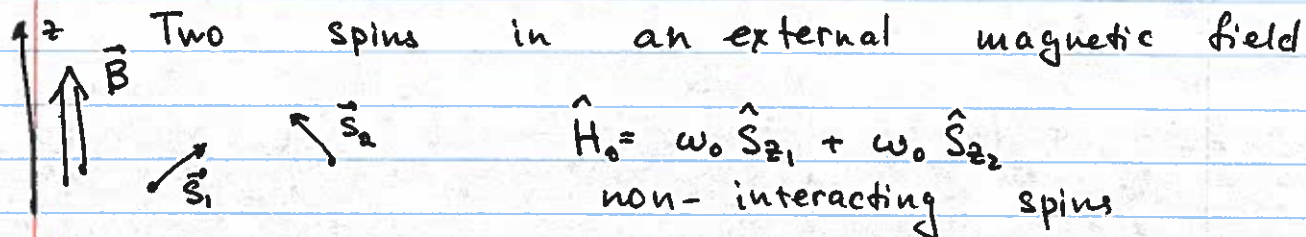 z Two spins in an external magnetic field
B⃗
S⃗₁ S⃗₂ Ĥ₀ = ω₀ Ŝz₁ + ω₀ Ŝz₂
non-interacting spins